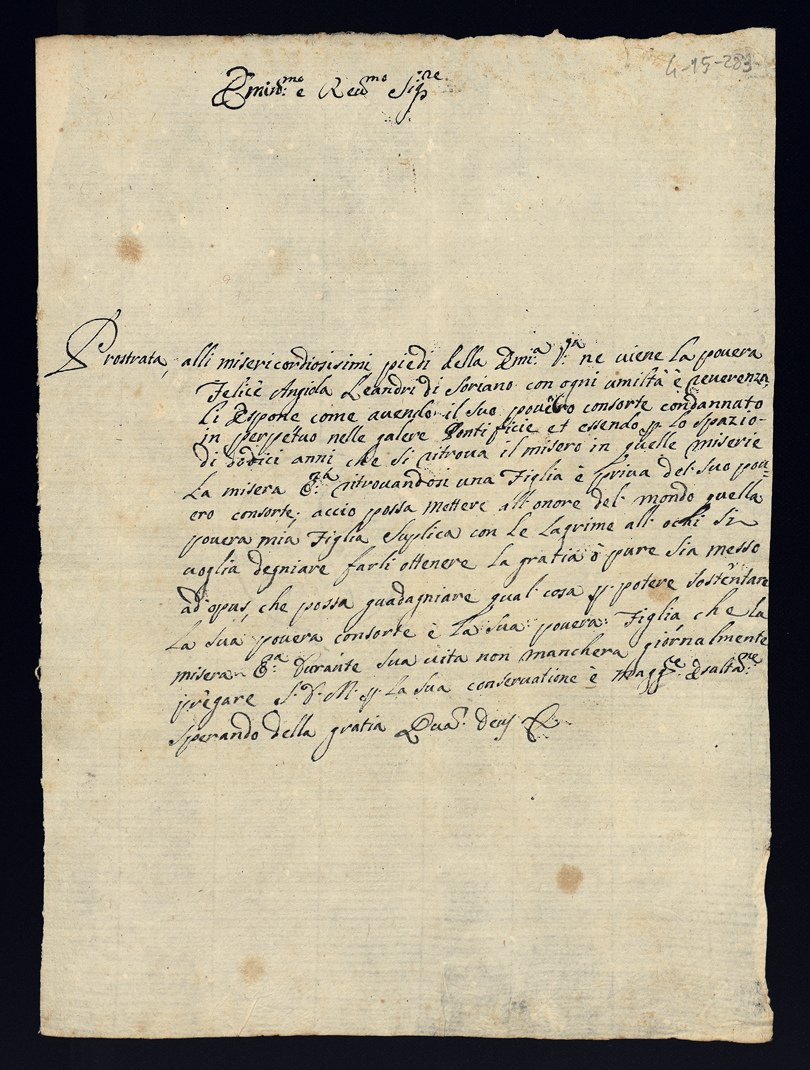 4-15-283
Emin:mo e Reu:mo Sig:re
Prostrata, alli misericordiosissimi piedi della Emi:a V:ra ne uiene la pouera
Felice Angiola Leandri di Soriano con ogni umiltà è reuerenza
li Espone come auendo il suo pouero consorte condannato
in perpetuo nelle galere Pontificie et essendo p lo spazio
di dodici anni che si ritroua il misero in quelle miserie
La misera Or:a ritrouandosi una Figlia è priua del suo pou=
ero consorte; accio possa mettere all'onore del mondo quella
pouera mia Figlia Suplica con le lagrime all'ochi si
uoglia degniare farli ottenere la gratia ò pure sia messo
ad opus, che possa guadagniare qual cosa p potere sostentare
La sua pouera consorte è la sua pouera Figlia che la
misera O:a durante sua uita non manchera giornalmente
pregare S. D. M. p la sua conseruatione è magg:re Esalta:ne
sperando della gratia Qua deus &